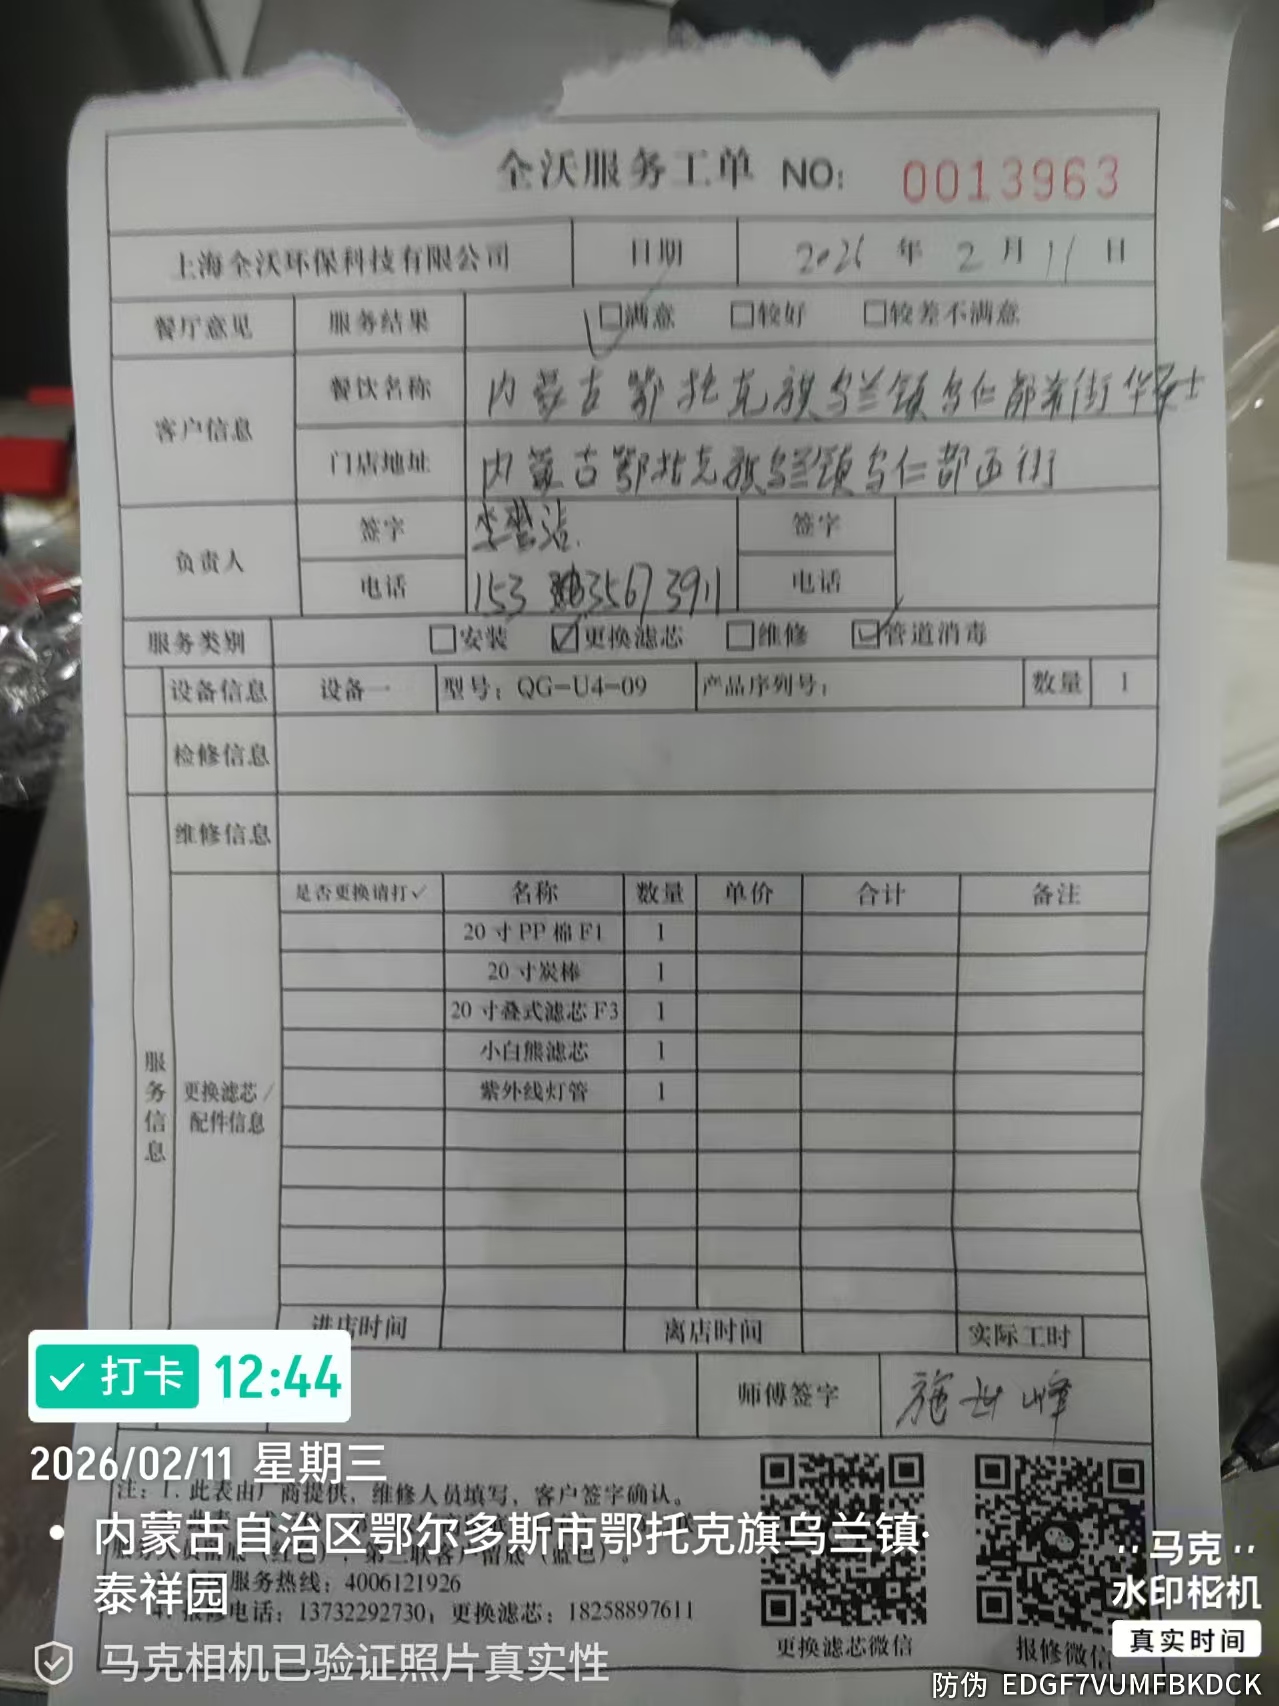 全沃服务工单 NO: 0013963
上海全沃环保科技有限公司 日期 2026 年 2 月 11 日
餐厅意见 服务结果 □满意 □较好 □较差不满意
客户信息 餐饮名称 内蒙古鄂托克旗乌兰镇乌仁都西街华莱士
门店地址 内蒙古鄂托克旗乌兰镇乌仁都西街
负责人 签字 签字
电话 153 3567 3911 电话
服务类别 □安装 ☑更换滤芯 □维修 ☑管道消毒
设备信息 设备一 型号：QG-U4-09 产品序列号： 数量 1
检修信息
维修信息
服务信息
更换滤芯/
配件信息
是否更换请打✓ 名称 数量 单价 合计 备注
20寸PP棉F1 1
20寸炭棒 1
20寸叠式滤芯F3 1
小白熊滤芯 1
紫外线灯管 1
进店时间 离店时间 实际工时
师傅签字 施世峰
注：1. 此表由厂商提供，维修人员填写，客户签字确认。
服务热线：4006121926
4. 报修电话：13732292730；更换滤芯：18258897611
更换滤芯微信 报修微信
✓打卡 12:44
2026/02/11 星期三
• 内蒙古自治区鄂尔多斯市鄂托克旗乌兰镇·
泰祥园
马克相机已验证照片真实性
马克
水印相机
真实时间
防伪 EDGF7VUMFBKDCK